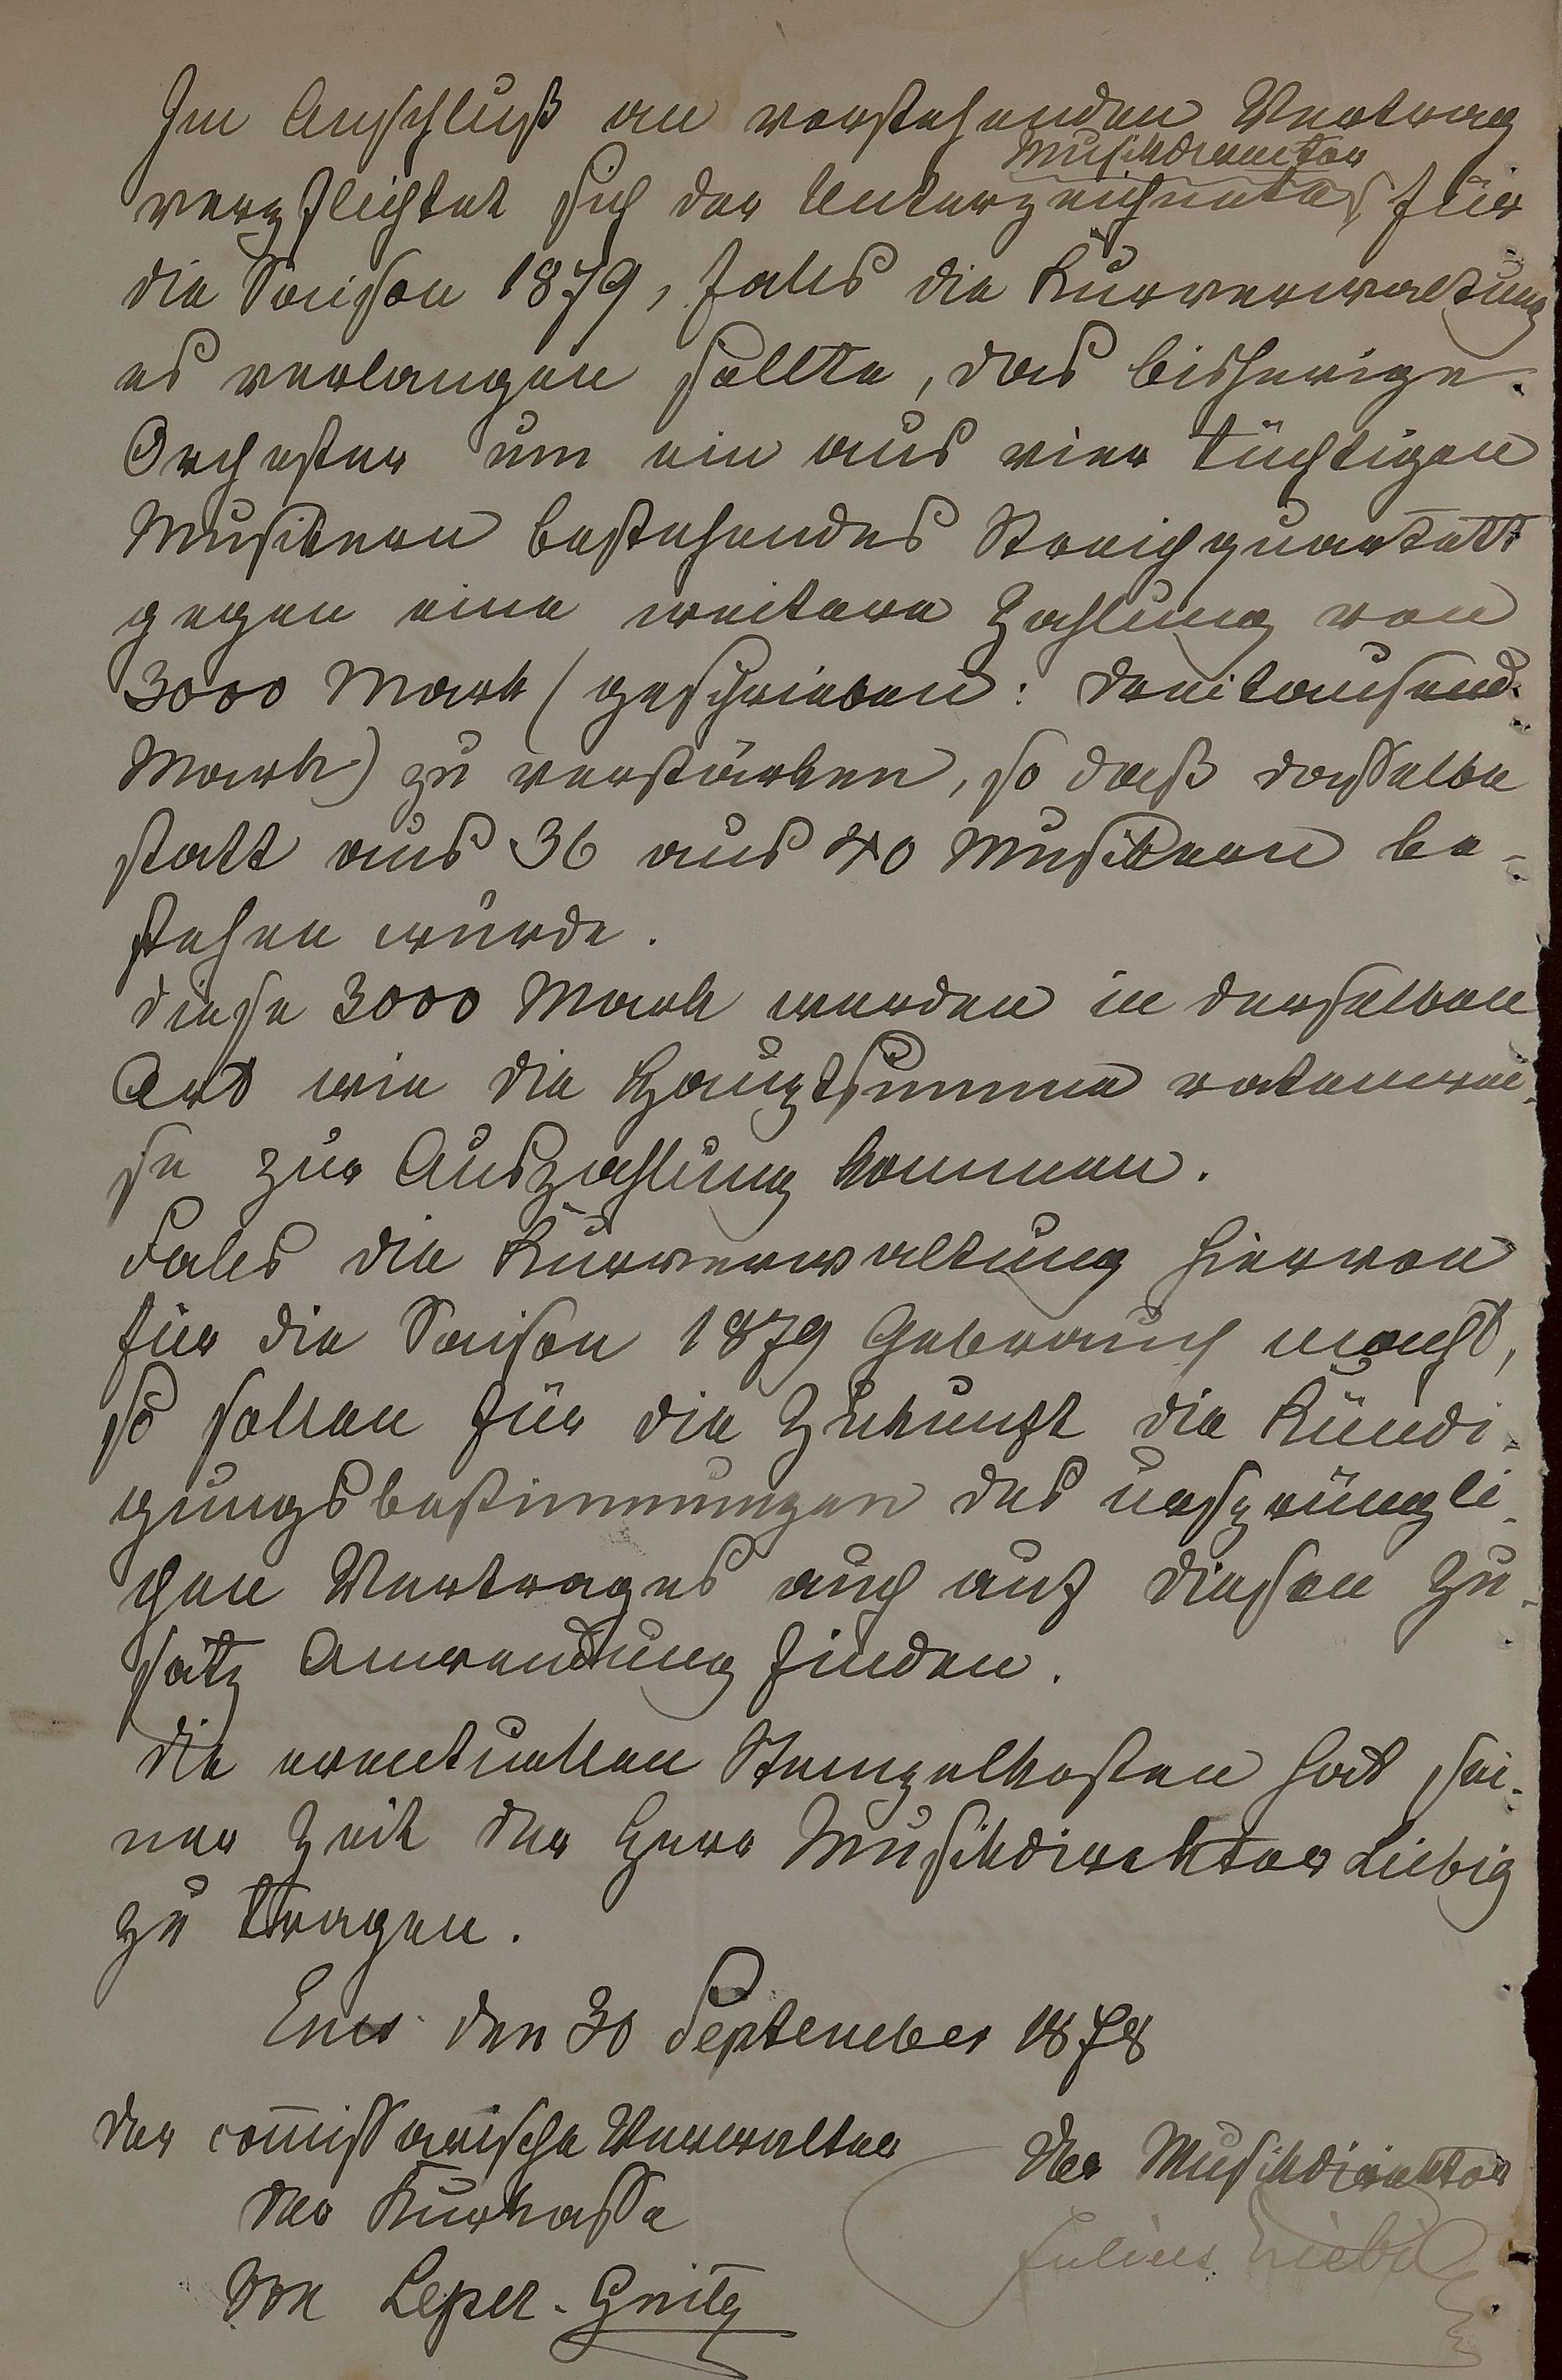 Im Anschluß an vorstehenden Vertrag
Musikdirector
verpflichtet sich der Unterzeichnete für
die Saison 1879, falls die Kurverwaltung
es verlangen sollte, das bisherige
Orchester um ein aus vier tüchtigen
Musikern bestehendes Streichquartett
gegen eine weitere Zahlung von
3000 Mark (geschrieben: Dreitausend
Mark) zu verstärken, so daß dasselbe
statt aus 36 aus 40 Musikern be-
stehen würde.
Diese 3000 Mark werden in derselben
Art wie die Hauptsumme ratenwei-
se zur Auszahlung kommen.
Falls die Kurverwaltung hiervon
für die Saison 1879 Gebrauch macht,
so sollen für die Zukunft die Kündi-
gungsbestimmungen des ursprüngli-
chen Vertrages auch auf diesen Zu-
satz Anwendung finden.
Die eventuellen Stempelkosten hat sei-
ner Zeit der Herr Musikdirektor Liebig
zu tragen.
Ems den 30 September 1878
Der com̅issarische Verwalter
der Kurkasse
Der Musikdirektor
Julius Liebig
von Lepel-Gnitz